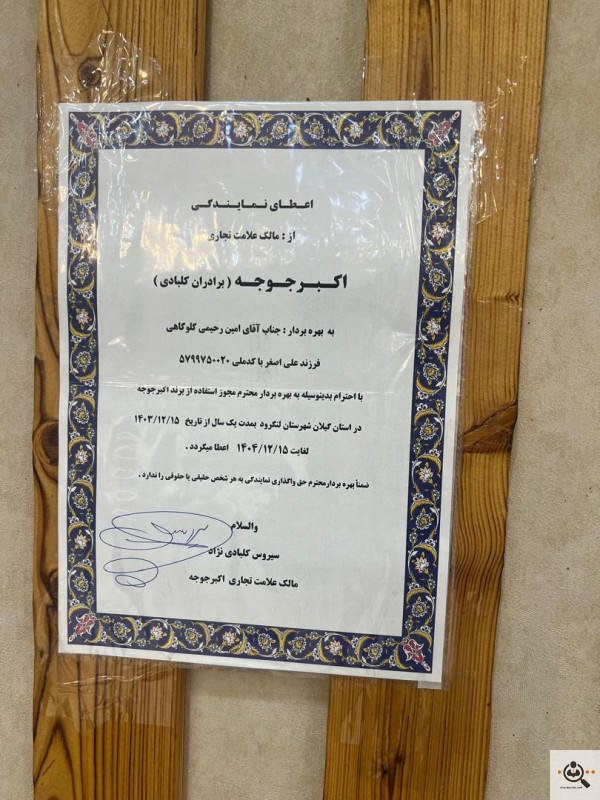 اعطای نمایندگی
از : مالک علامت تجاری
اکبرجوجه ( برادران کلبادی )
به بهره بردار : جناب آقای امین رحیمی گلوگاهی
فرزند علی اصغر با کدملی ۵۷۹۹۷۵۰۰۲۰
با احترام بدینوسیله به بهره بردار محترم مجوز استفاده از برند اکبرجوجه
در استان گیلان شهرستان لنگرود بمدت یک سال از تاریخ ۱۴۰۳/۱۲/۱۵
لغایت ۱۴۰۴/۱۲/۱۵ اعطا میگردد .
ضمناً بهره بردارمحترم حق واگذاری نمایندگی به هر شخص حقیقی یا حقوقی را ندارد .
والسلام
سیروس کلبادی نژاد
مالک علامت تجاری اکبرجوجه